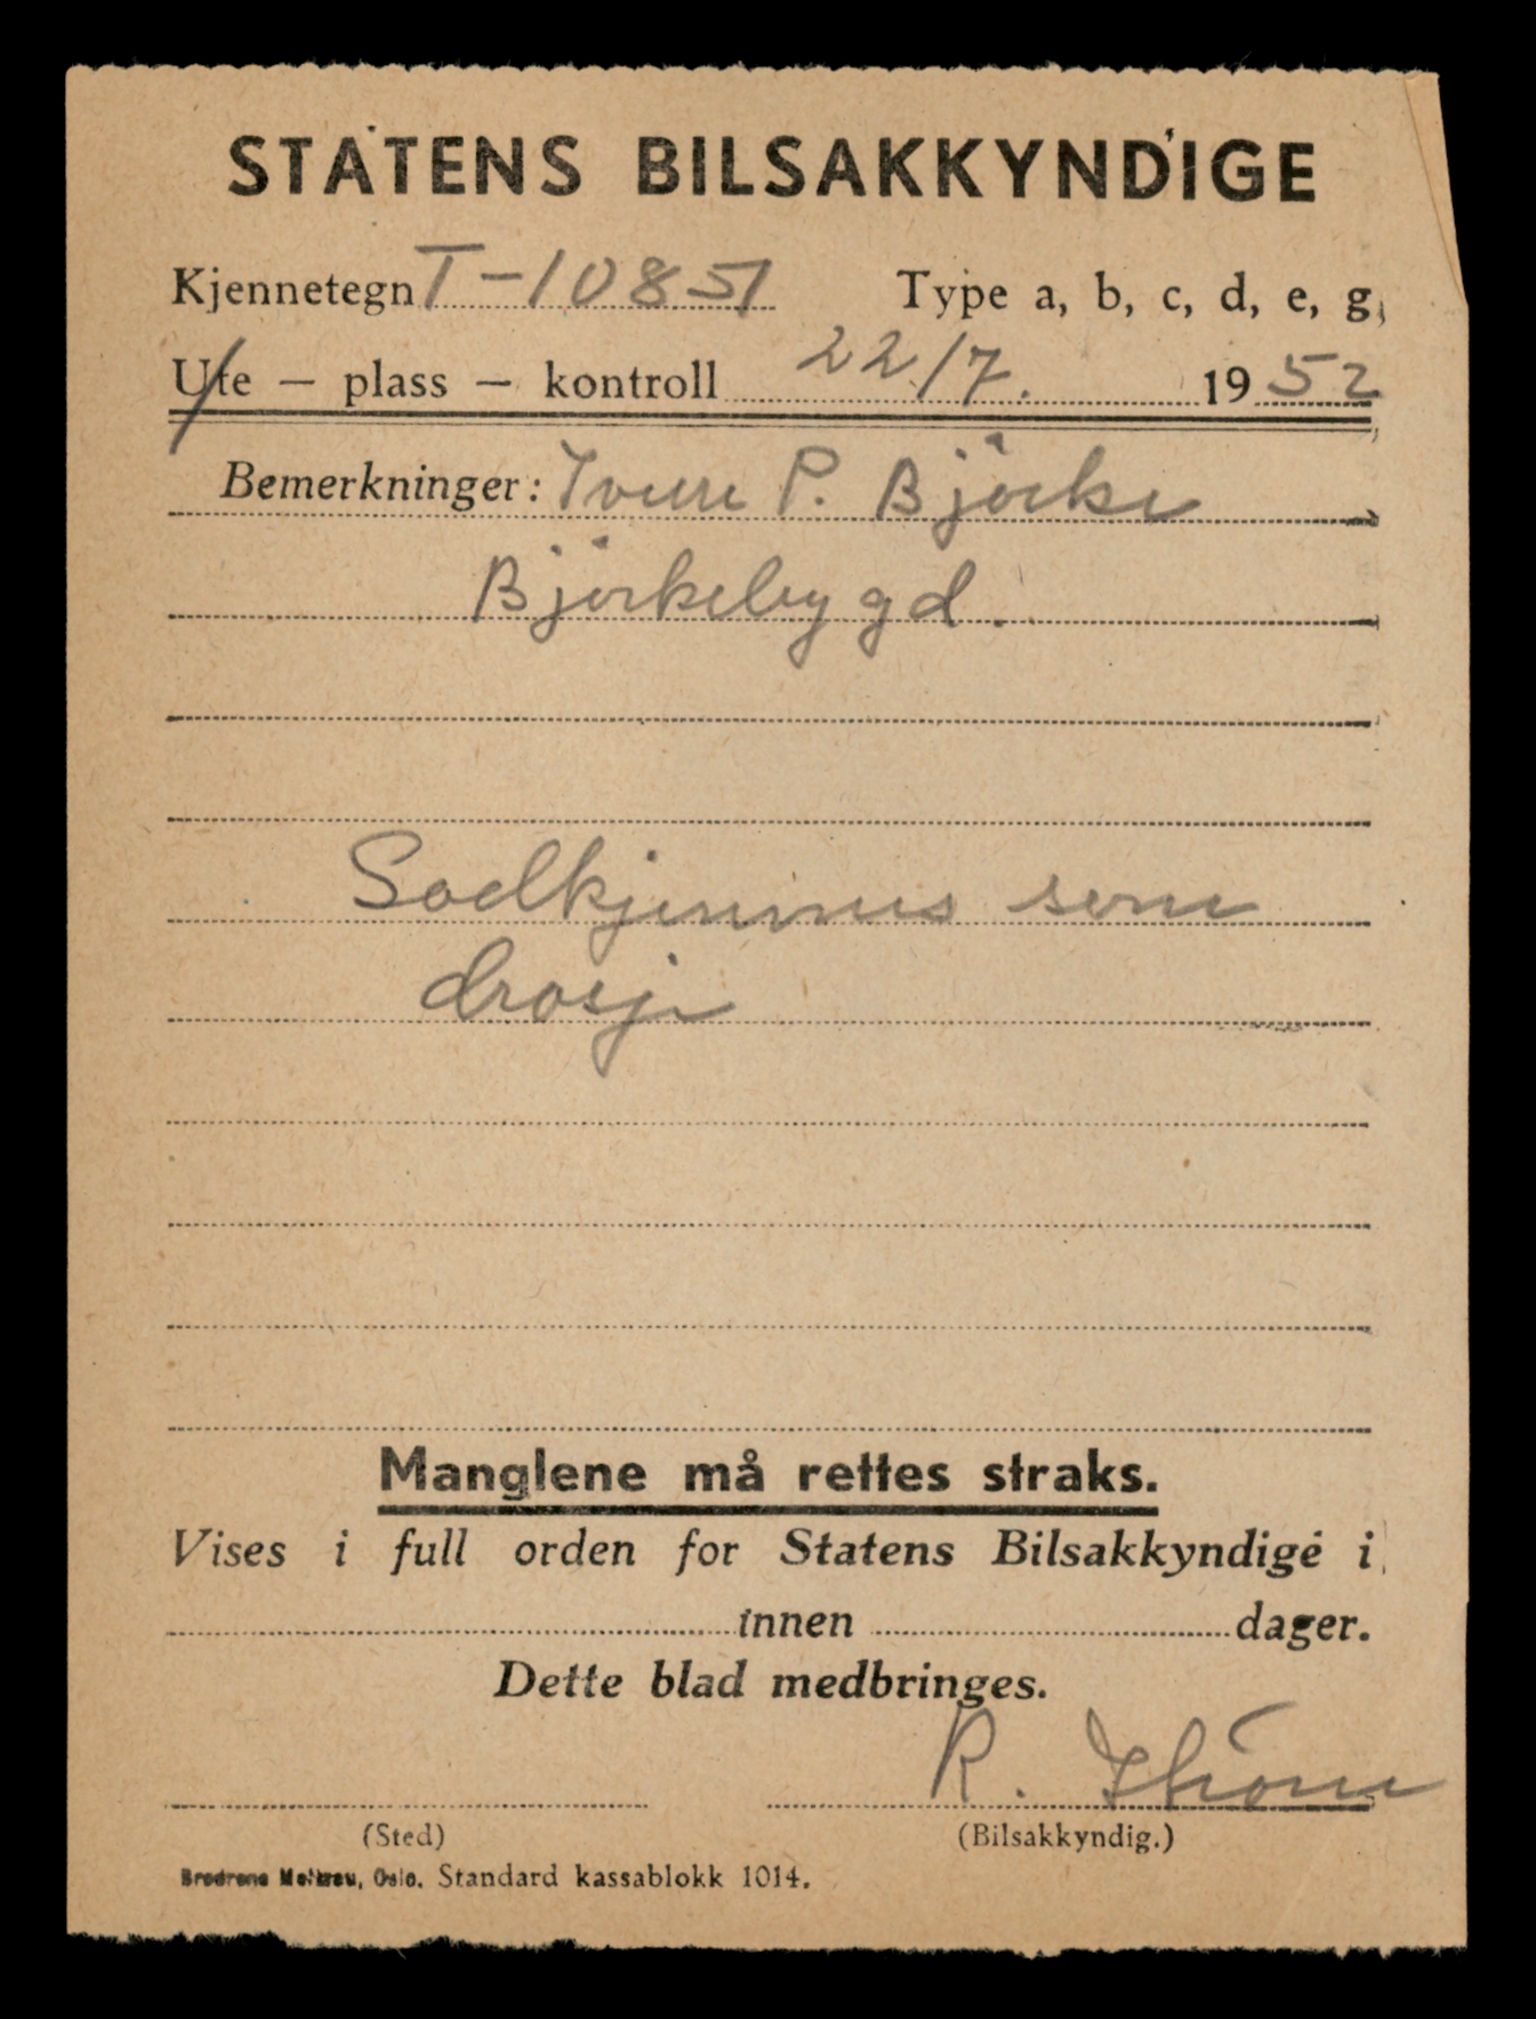 STATENS BILSAKKYNDIGE
Kjennetegn T-10851 Type a, b, c, d, e, g,
Ute — plass — kontroll 22/7. 1952
Bemerkninger: Iver P. Björke
Björkebygd.
Godkjennes som
drosje
Manglene må rettes straks.
Vises i full orden for Statens Bilsakkyndige i
innen dager.
Dette blad medbringes.
R.
(Sted) (Bilsakkyndig.)
Oslo. Standard kassablokk 1014.